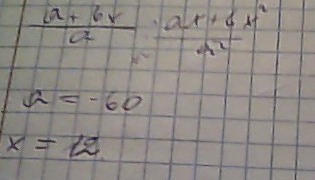 (a + 6x)/a : (ax + 6x²)/a²
a = -60
x = 12